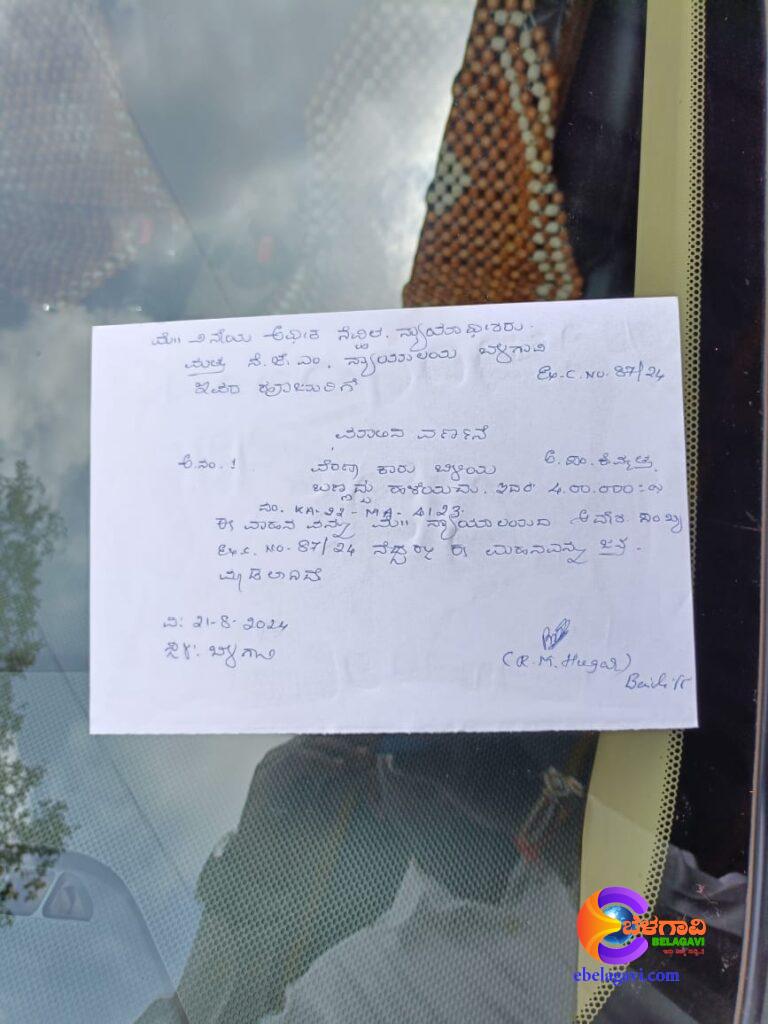 ಮೆ॥ ೨ನೇಯ ಅಧೀಕ ನ್ಯಾಯಾಧೀಶರು.
ಮತ್ತು ಸಿ.ಜೆ.ಎಂ. ನ್ಯಾಯಾಲಯ ಬೆಳಗಾವಿ
ಇವರ ಹುಜೂರಿಗೆ
Ex.C.No.87/24
ಮಾಲಿನ ವರ್ಣನೆ
ಅ.ನಂ. 1
ವೆರ್ಣಾ ಕಾರು ಬಿಳಿಯ
ಅ. ಮಾ. ಕಿಮ್ಮತ್ತು
ಬಣ್ಣದ್ದು ಹಳೆಯದು. ಇದರ 4.00.000=೦೦
ನಂ. KA-22-MA-4123.
ಈ ವಾಹನವನ್ನು ಮೆ॥ ನ್ಯಾಯಾಲಯದ ಆದೇಶ ಸಂಖ್ಯೆ
Ex.C. NO.87/24 ಈ ವಾಹನವನ್ನು ಜಪ್ತ.
ಮಾಡಲಾಗಿದೆ
ದಿ: 21-8-2024
ಸ್ಥಳ: ಬೆಳಗಾವಿ
(R.M. Hugar)
Bailiff
ಬೆಳಗಾವಿ
BELAGAVI
ebelagavi.com